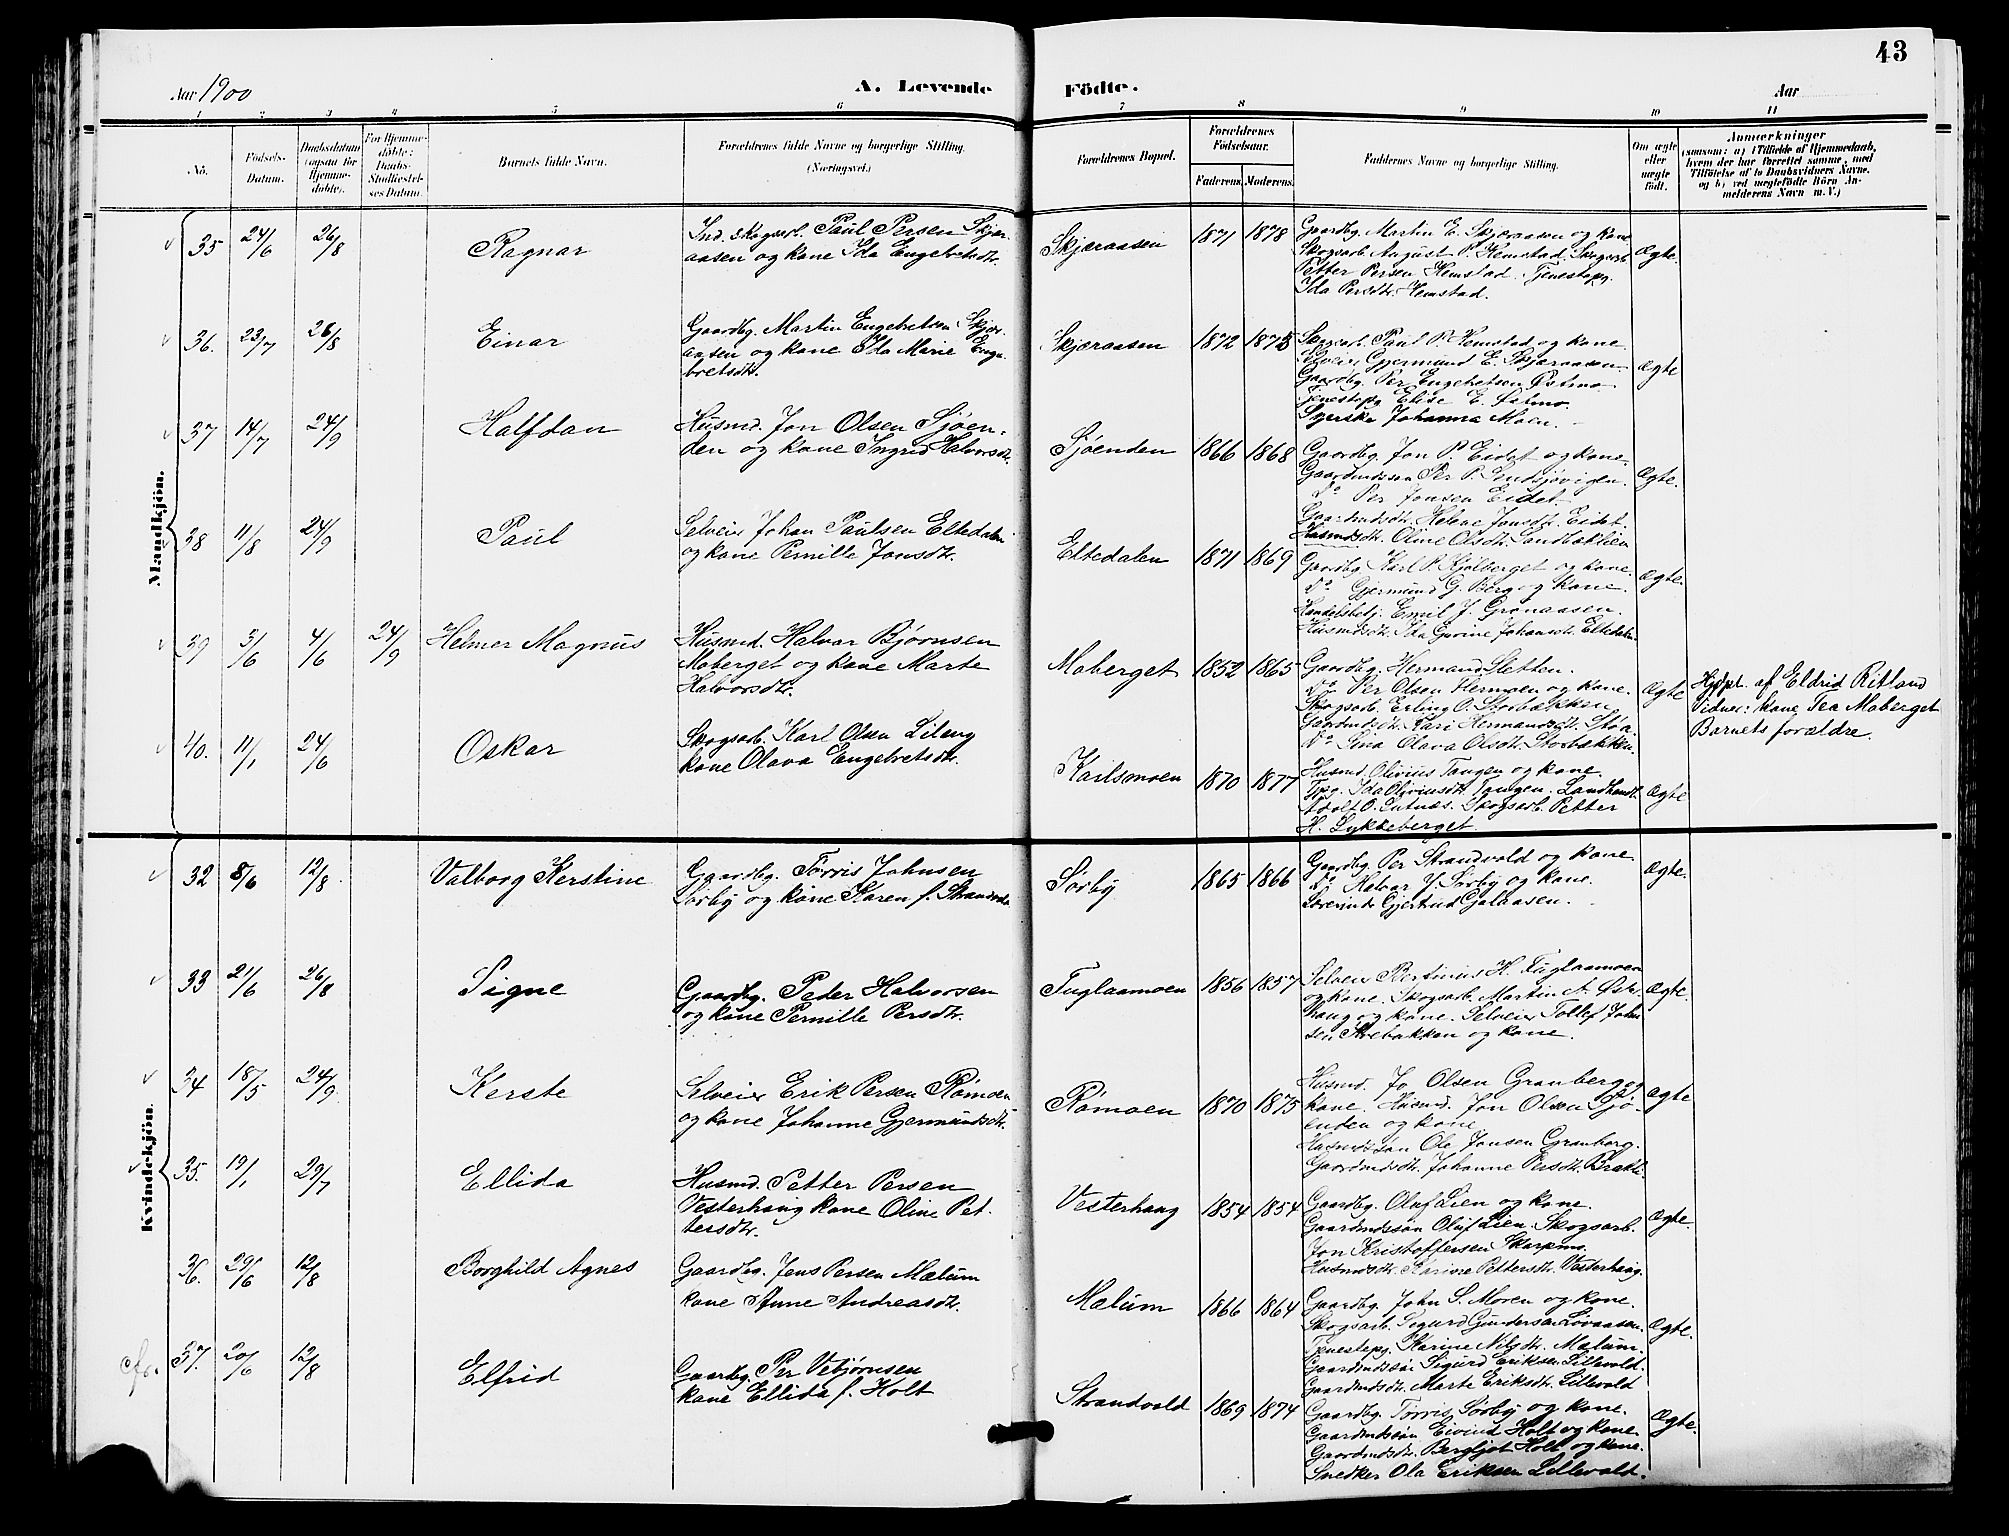 43
Aar 1900
A. Levende
Födte.
Aar
1 2 3 4 5 6 7 8 9 10 11
No.
Födsels-Datum.
Daabsdatum (ogsaa for Hjemme-döbte).
For Hjemme-döbte: Daabs-Stadfæstelses Datum.
Barnets fulde Navn.
Forældrenes fulde Navne og borgerlige Stilling. (Næringsvei.)
Forældrenes Bopæl.
Forældrenes Födselsaar.
Faderens. Moderens.
Faddernes Navne og borgerlige Stilling.
Om ægte eller uægte födt.
Anmærkninger
(saasom: a) i Tilfælde af Hjemmedaab, hvem der har forrettet samme, med Tilföielse af to Daabsvidners Navne, og b) ved uægtefödte Börn Anmelderens Navn m. V.)
Mandkjön.
35 24/6 26/8 Ragnar
Ind. Skogsarb. Paul Persen Skjær-
aasen og kone Ida Engebretsdtr.
Skjæraasen 1871 1878
Gaardbg. Martin E. Skjæraasen og kone
Skogsarb. August P. Hemstad. Skogsarb.
Petter Persen Hemstad. Tjenestepg.
Ida Persdtr. Hemstad.
Ægte.
36. 23/7 26/8 Einar
Gaardbg. Martin Engebretsen Skjær-
aasen og kone Ida Marie Enge-
bretsdtr.
Skjæraasen 1872 1875
Skogsarb. Paul P. Hemstad og kone
Selveier Gjermund E. Skjæraasen
Gaardbg. Per Engebretsen Østmo
Tjenestepg Elise E. Østmo.
Syerske Johanna Moen.
Ægte
37 14/7 24/9 Halfdan
Husmd. Jon Olsen Sjøen-
den og kone Ingrid Halvorsdtr.
Sjøenden 1866 1868
Gaardbg. Jon P. Eidet og kone.
Gaardmdssøn Per P. Lendsjøvigen.
Do Per Jonsen Eidet.
Gaardmdsdtr. Helene Jonsdtr. Eidet.
Husmdsdtr. Oline Olsdtr. Sandbæklien
Ægte.
38 11/8 24/9 Paul
Selveier Johan Paulsen Eltedalen
og kone Pernille Jonsdtr.
Eltedalen 1871 1869
Gaardbg. Karl P. Kjølberget og kone.
Do Gjermund G. Berg og kone.
Handelsbetj. Emil J. Grønaasen.
Husmdsdtr. Ida Gurine Johansdtr. Eltedalen.
Ægte.
39 3/6 4/6 24/9 Helmer Magnus
Husmd. Halvar Bjørnsen
Moberget og kone Marte
Halvorsdtr.
Moberget 1852 1865
Gaardbg. Herman Sletten.
Do Per Olsen Hermoen og kone.
Skogsarb. Erling O. Storbækken
Gaardmdsdtr. Kari Hermansdtr. Støa
Do Lina Olava Olsdtr. Storbækken.
Ægte
Hjdpt. af Eldrid Ritland
Vidner: kone Tea Moberget
Barnets forældre.
40. 11/1 24/6 Oskar
Skogsarb. Karl Olsen Lileng
kone Olava Engebretsdtr.
Karlsmoen 1870 1877
Husmd. Olivius Tangen og kone.
Tjpg. Ida Oliviusdtr. Tangen. Landhandl.
Adolf O. Lutnæs. Skogsarb. Petter
H. Lykkeberget.
Ægte
Kvindekjön.
32 8/6 12/8 Valborg Kerstine
Gaardbg. Tørris Johnsen
Sørby og kone Karen f. Strandvold
Sørby 1865 1866
Gaardbg. Per Strandvold og kone.
Do Halvar J. Sørby og kone.
Lærerinde Gjertrud Galaasen.
Ægte.
33 21/6 26/8 Signe
Gaardbg. Peder Halvorsen
og kone Pernille Persdtr.
Fuglaamoen 1856 1857
Selveier Bertinius H. Fuglaamoen
og kone. Skogsarb. Martin A. Øst-
haug og kone. Selveier Tollef John-
sen Krebakken og kone.
Ægte.
34 18/5 24/9 Kerste
Selveier Erik Persen Rømoen
og kone Johanne Gjermundsdtr.
Rømoen 1870 1875
Husmd. Jo Olsen Granberg og
kone. Husmd. Jon Olsen Sjø-
enden og kone
Husmdssøn Ole Jonsen Granberg.
Gaardmdsdtr. Johanne Persdtr.
Ægte
35. 19/1 29/7 Ellida
Husmd. Petter Persen
Vesterhaug kone Oline Pet-
tersdtr.
Vesterhaug 1854 1854
Gaardbg. Oluf Lien og kone.
Gaardmdssøn Oluf Lien. Skogsarb.
Jon Kristoffersen Skarpmo.
Husmdsdtr. Karine Pettersdtr. Vesterhaug.
Ægte.
36. 29/6 12/8 Borghild Agnes
Gaardbg. Jens Persen Mælum
kone Anne Andreasdtr.
Mælum 1866 1864
Gaardbg. John S. Moren og kone.
Skogsarb. Sigurd Gundersen Løvaasen.
Tjenestepg. Karine Nilsdtr. Mælum.
Gaardmdssøn Sigurd Eriksen Lillevold.
Gaardmdsdtr. Marte Eriksdtr. Lillevold
Ægte.
37. 20/6 12/8 Elfrid
Gaardbg. Per Vebjørnsen
kone Ellida f. Holt
Strandvold 1869 1874
Gaardbg. Tørris Sørby og kone.
Gaardmdssøn Eivind Holt og kone
Gaardmdsdtr. Bergljot Holt og kone.
Snedker Ola Eriksen Lillevold.
Ægte.